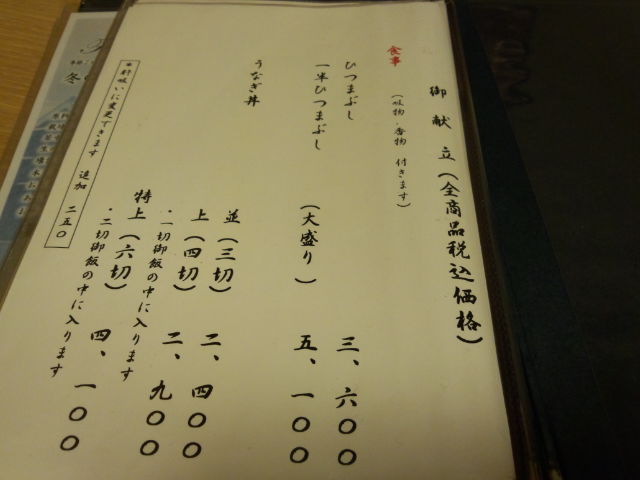 御献立（全商品税込価格）
食事
（吸物・香物 付きます）
ひつまぶし 三、六〇〇
一半ひつまぶし（大盛り） 五、一〇〇
うなぎ丼
並（三切） 二、四〇〇
上（四切） 二、九〇〇
・一切御飯の中に入ります
特上（六切） 四、一〇〇
・二切御飯の中に入ります
＊肝吸いに変更できます 追加 二五〇
冬の